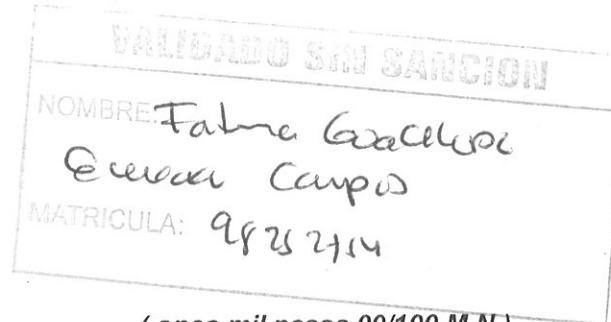 VALIDADO SIN SANCION
NOMBRE: Fatima
Campos
MATRICULA: 98252754
( once mil pesos 00/100 M.N )